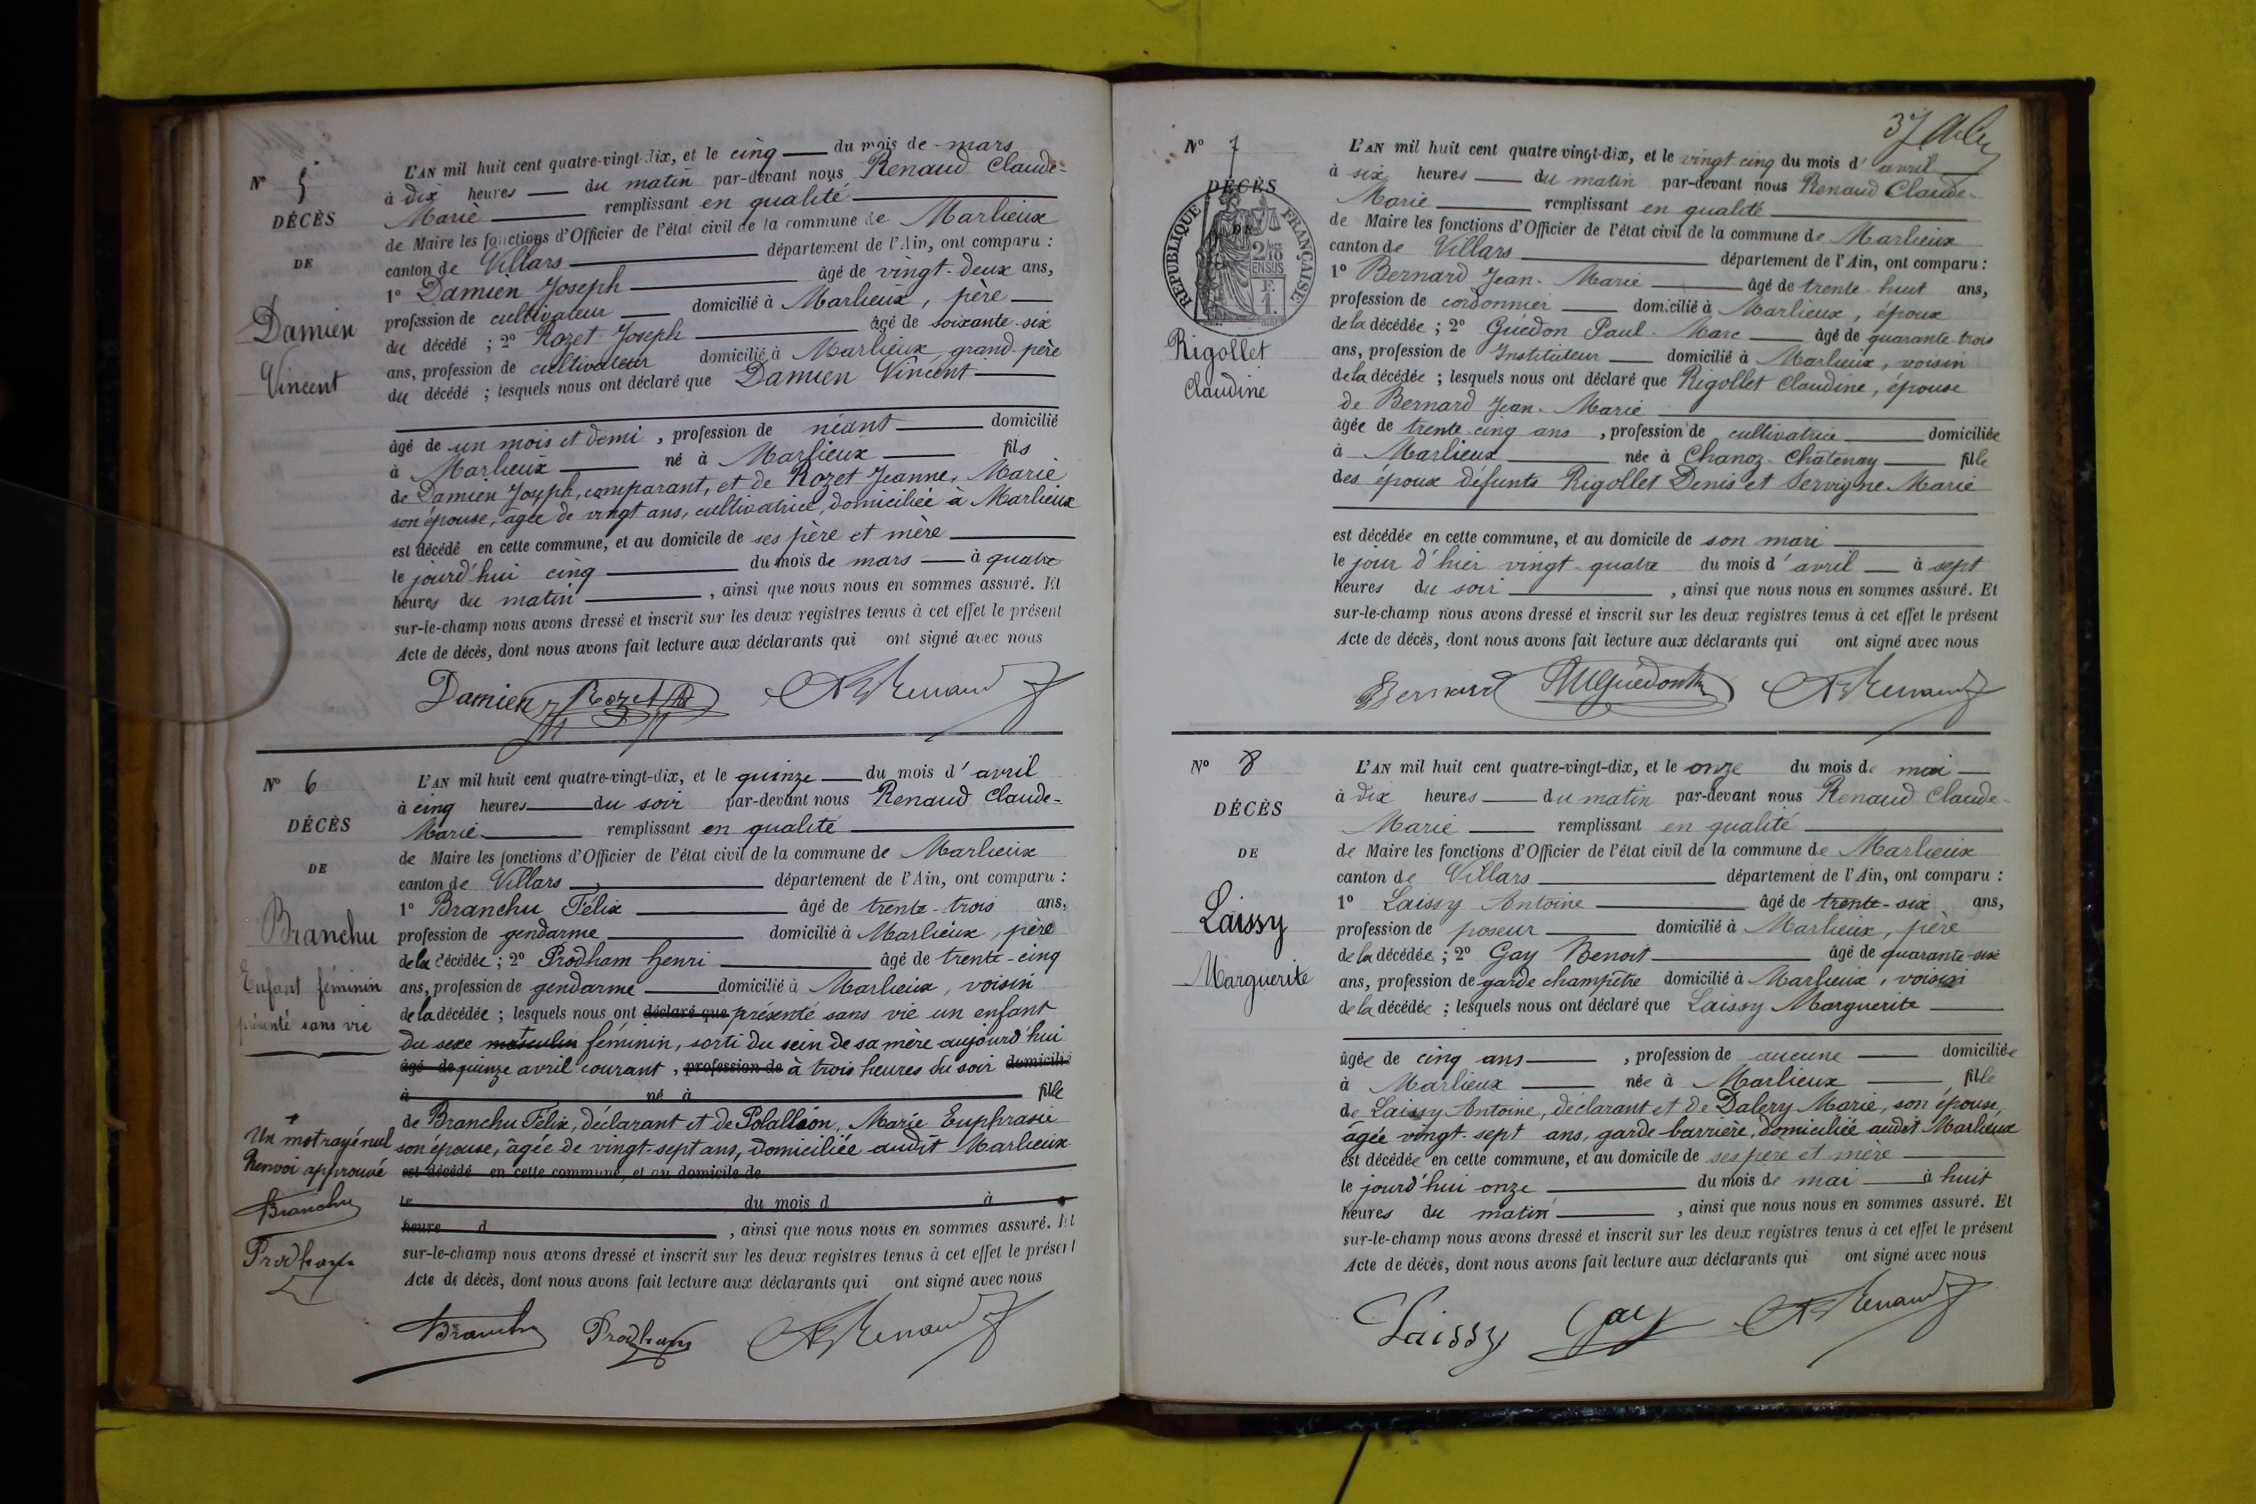 N° 5
DÉCÈS
DE
Damien
Vincent
L'AN mil huit cent quatre-vingt-dix, et le cinq du mois de mars
à dix heures du matin par-devant nous Renaud Claude-
Marie remplissant en qualité
de Maire les fonctions d'Officier de l'état civil de la commune de Marlieux
canton de Villars département de l'Ain, ont comparu :
1° Damien Joseph âgé de vingt-deux ans,
profession de cultivateur domicilié à Marlieux, père
du décédé ; 2° Rozet Joseph âgé de soixante-six
ans, profession de cultivateur domicilié à Marlieux, grand-père
du décédé ; lesquels nous ont déclaré que Damien Vincent
âgé de un mois et demi, profession de néant domicilié
à Marlieux né à Marlieux fils
de Damien Joseph, comparant, et de Rozet Jeanne, Marie
son épouse, âgée de vingt ans, cultivatrice, domiciliée à Marlieux
est décédé en cette commune, et au domicile de ses père et mère
le jourd'hui cinq du mois de mars à quatre
heures du matin, ainsi que nous nous en sommes assuré. Et
sur-le-champ nous avons dressé et inscrit sur les deux registres tenus à cet effet le présent
Acte de décès, dont nous avons fait lecture aux déclarants qui ont signé avec nous
Damien Rozet Renaud
N° 6
DÉCÈS
DE
Branchu
Enfant féminin
présenté sans vie
L'AN mil huit cent quatre-vingt-dix, et le quinze du mois d'avril
à cinq heures du soir par-devant nous Renaud Claude-
Marie remplissant en qualité
de Maire les fonctions d'Officier de l'état civil de la commune de Marlieux
canton de Villars département de l'Ain, ont comparu :
1° Branchu Félix âgé de trente-trois ans,
profession de gendarme domicilié à Marlieux, père
de la décédée ; 2° Prodham henri âgé de trente-cinq
ans, profession de gendarme domicilié à Marlieux, voisin
de la décédée ; lesquels nous ont déclaré que présenté sans vie un enfant
du sexe masculin féminin, sorti du sein de sa mère aujourd'hui
âgé de quinze avril courant, profession de à trois heures du soir domicilié
à né à fille
de Branchu Félix, déclarant et de Polallion, Marie Euphrasie
son épouse, âgée de vingt-sept ans, domiciliée audit Marlieux
est décédé en cette commune, et au domicile de
le du mois d à
heure d, ainsi que nous nous en sommes assuré. Et
sur-le-champ nous avons dressé et inscrit sur les deux registres tenus à cet effet le présent
Acte de décès, dont nous avons fait lecture aux déclarants qui ont signé avec nous
Un mot rayé nul
Renvoi approuvé
Branchu
Prodham
Branchu Prodham Renaud
37
N° 7
DÉCÈS
DE
RÉPUBLIQUE FRANÇAISE
2/10
EN SUS
F.
1.
Rigollet
Claudine
L'AN mil huit cent quatre-vingt-dix, et le vingt cinq du mois d'avril
à six heures du matin par-devant nous Renaud Claude-
Marie remplissant en qualité
de Maire les fonctions d'Officier de l'état civil de la commune de Marlieux
canton de Villars département de l'Ain, ont comparu :
1° Bernard Jean-Marie âgé de trente-huit ans,
profession de cordonnier domicilié à Marlieux, époux
de la décédée ; 2° Guédon Paul-Marc âgé de quarante-trois
ans, profession de Instituteur domicilié à Marlieux, voisin
de la décédée ; lesquels nous ont déclaré que Rigollet Claudine, épouse
de Bernard Jean-Marie
âgée de trente-cinq ans, profession de cultivatrice domiciliée
à Marlieux née à Chanoz-Châtenay fille
des époux défunts Rigollet Denis et Servigne Marie
est décédée en cette commune, et au domicile de son mari
le jour d'hier vingt-quatre du mois d'avril à sept
heures du soir, ainsi que nous nous en sommes assuré. Et
sur-le-champ nous avons dressé et inscrit sur les deux registres tenus à cet effet le présent
Acte de décès, dont nous avons fait lecture aux déclarants qui ont signé avec nous
Bernard PMGuédon Renaud
N° 8
DÉCÈS
DE
Laissy
Marguerite
L'AN mil huit cent quatre-vingt-dix, et le onze du mois de mai
à dix heures du matin par-devant nous Renaud Claude-
Marie remplissant en qualité
de Maire les fonctions d'Officier de l'état civil de la commune de Marlieux
canton de Villars département de l'Ain, ont comparu :
1° Laissy Antoine âgé de trente-six ans,
profession de poseur domicilié à Marlieux, père
de la décédée ; 2° Gay Benoit âgé de quarante-six
ans, profession de garde champêtre domicilié à Marlieux, voisin
de la décédée ; lesquels nous ont déclaré que Laissy Marguerite
âgée de cinq ans, profession de aucune domiciliée
à Marlieux née à Marlieux fille
de Laissy Antoine, déclarant et de Dalery Marie, son épouse,
âgée vingt-sept ans, garde-barrière, domiciliée audit Marlieux
est décédée en cette commune, et au domicile de ses père et mère
le jourd'hui onze du mois de mai à huit
heures du matin, ainsi que nous nous en sommes assuré. Et
sur-le-champ nous avons dressé et inscrit sur les deux registres tenus à cet effet le présent
Acte de décès, dont nous avons fait lecture aux déclarants qui ont signé avec nous
Laissy Gay Renaud